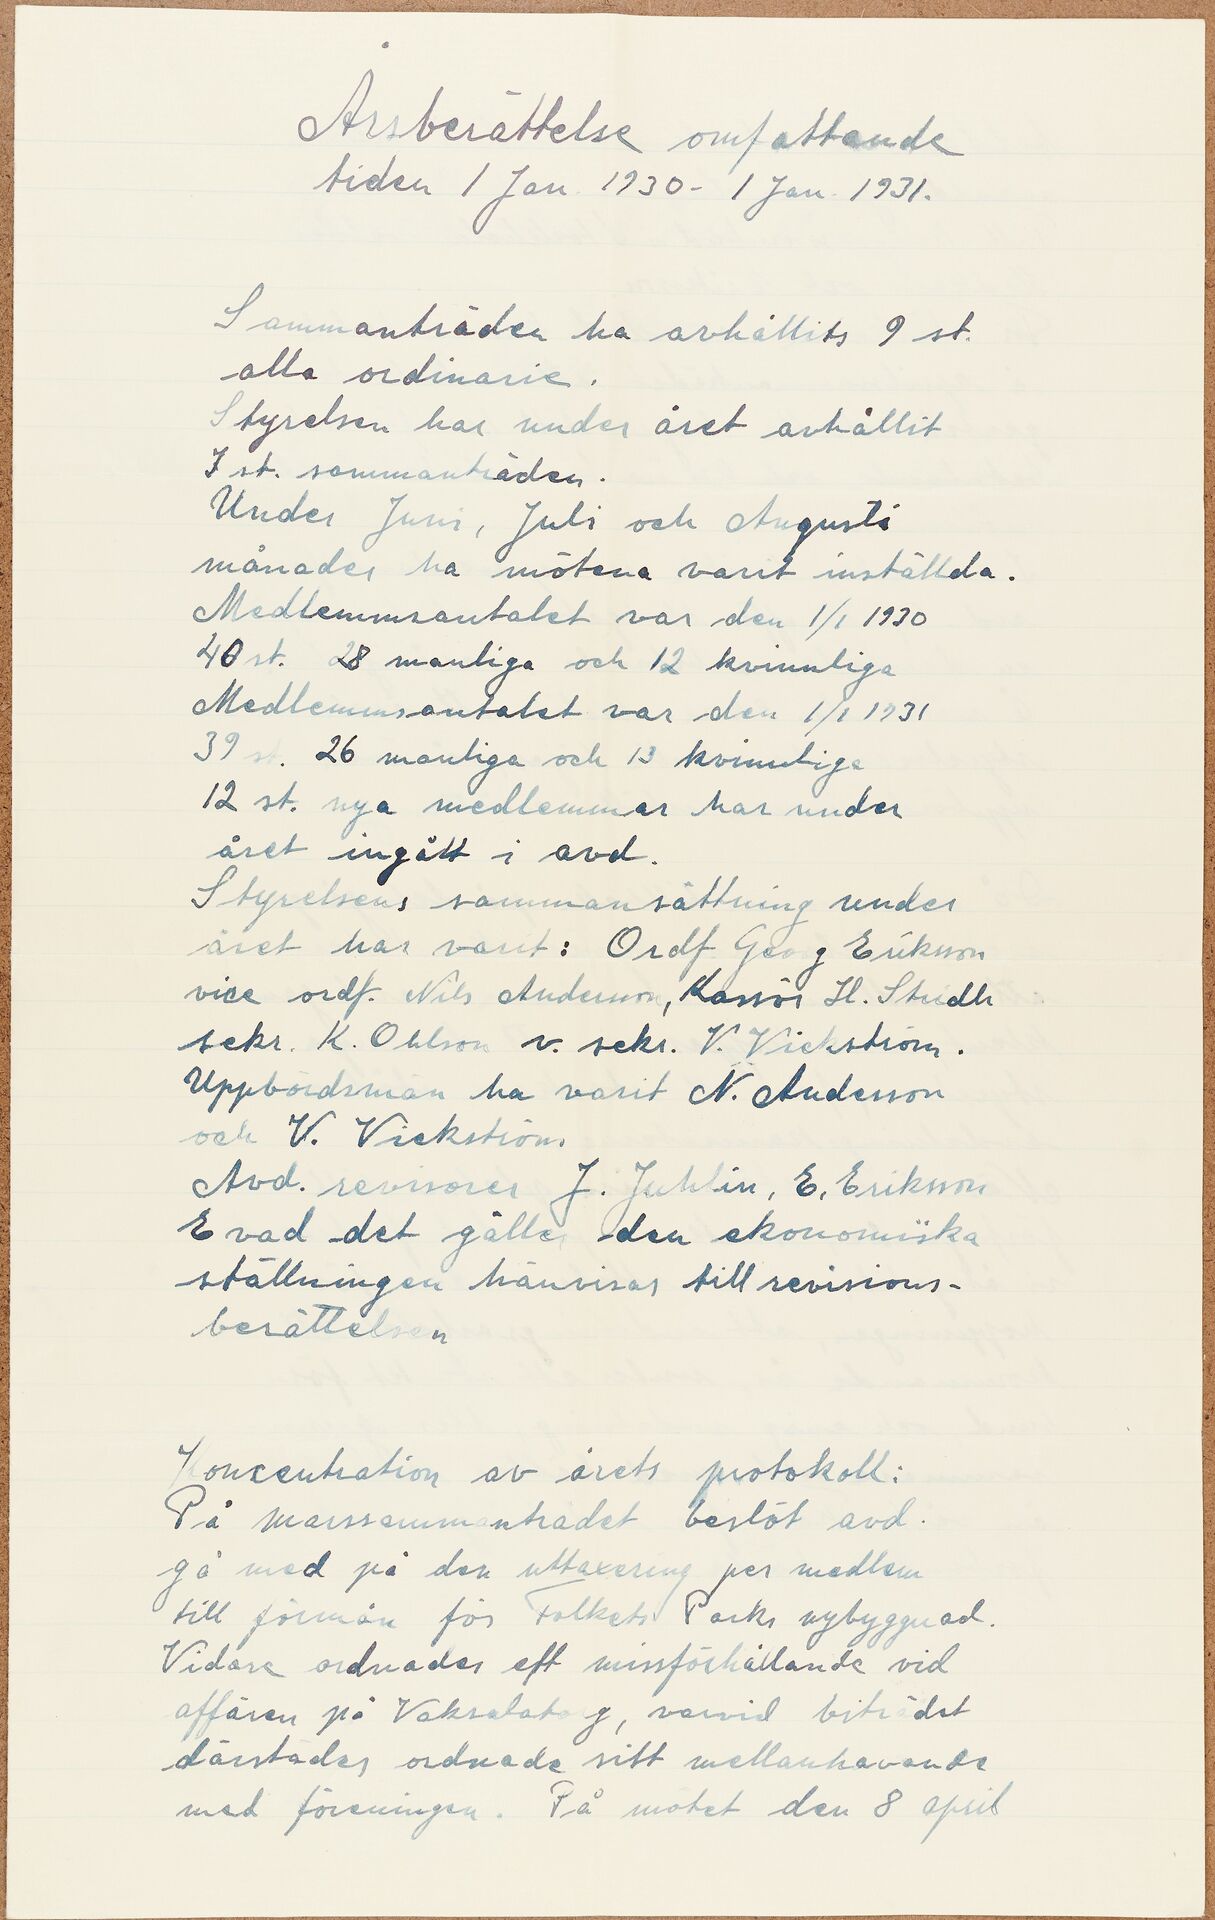 Årsberättelse omfattande
tiden 1 Jan. 1930 - 1 Jan. 1931.
Sammanträden ha avhållits 9 st.
alla ordinarie.
Styrelsen har under året avhållit
7 st. sammanträden.
Under Juni, Juli och Augusti
månader ha mötena varit inställda.
Medlemmsantalet var den 1/1 1930
40 st. 28 manliga och 12 kvinnliga
Medlemmsantalet var den 1/1 1931
39 st. 26 manliga och 13 kvinnliga
12 st. nya medlemmar har under
året ingått i avd.
Styrelsens sammansättning under
året har varit: Ordf Georg Eriksson
vice ordf. Nils Andersson, Kassör H. Stridh
sekr. K. Ohlson v. sekr. V. Vickström.
Uppbördsmän ha varit N. Andersson
och V. Vickström
Avd. revisorer J. Juhlin, E. Eriksson
E vad det gäller den ekonomiska
ställningen hänvisas till revisions-
berättelsen
Koncentration av årets protokoll:
På marssammanträdet beslöt avd.
gå med på den uttaxering per medlem
till förmån för Folkets Parks nybyggnad.
Vidare ordnades ett missförhållande vid
affären på Vaksalatorg, varvid biträdet
därstädes ordnade sitt mellanhavande
med föreningen. På mötet den 8 april